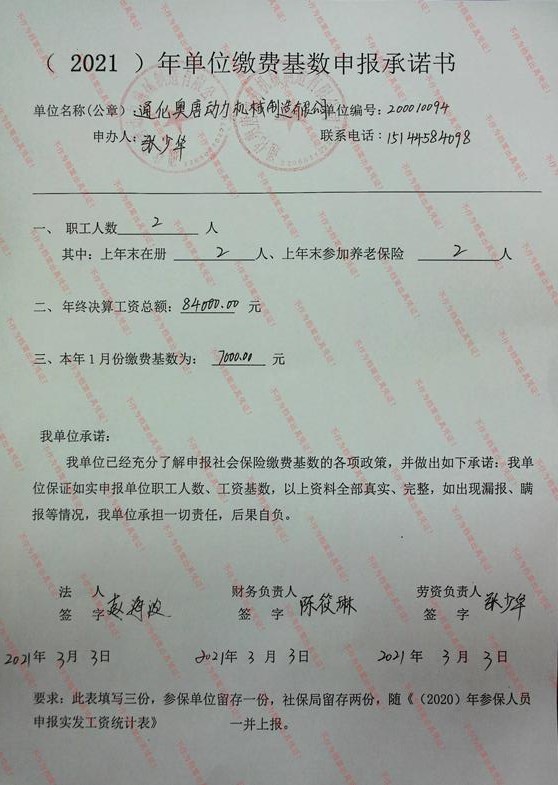 （ 2021 ）年单位缴费基数申报承诺书
单位名称(公章)：通化奥唐动力机械制造有限公司单位编号：200010094
申办人：张少华 联系电话：15144584098
一、 职工人数 2 人
其中：上年末在册 2 人、上年末参加养老保险 2 人
二、年终决算工资总额：84000.00 元
三、本年1月份缴费基数为： 7000.00 元
我单位承诺：
我单位已经充分了解申报社会保险缴费基数的各项政策，并做出如下承诺：我单
位保证如实申报单位职工人数、工资基数，以上资料全部真实、完整，如出现漏报、瞒
报等情况，我单位承担一切责任，后果自负。
法 人 财务负责人 劳资负责人
签 字 签 字 陈筱琳 签 字 张少华
2021年 3月 3日 2021年 3 月 3日 2021 年 3 月 3日
要求：此表填写三份，参保单位留存一份，社保局留存两份，随《（2020）年参保人员
申报实发工资统计表》 一并上报。